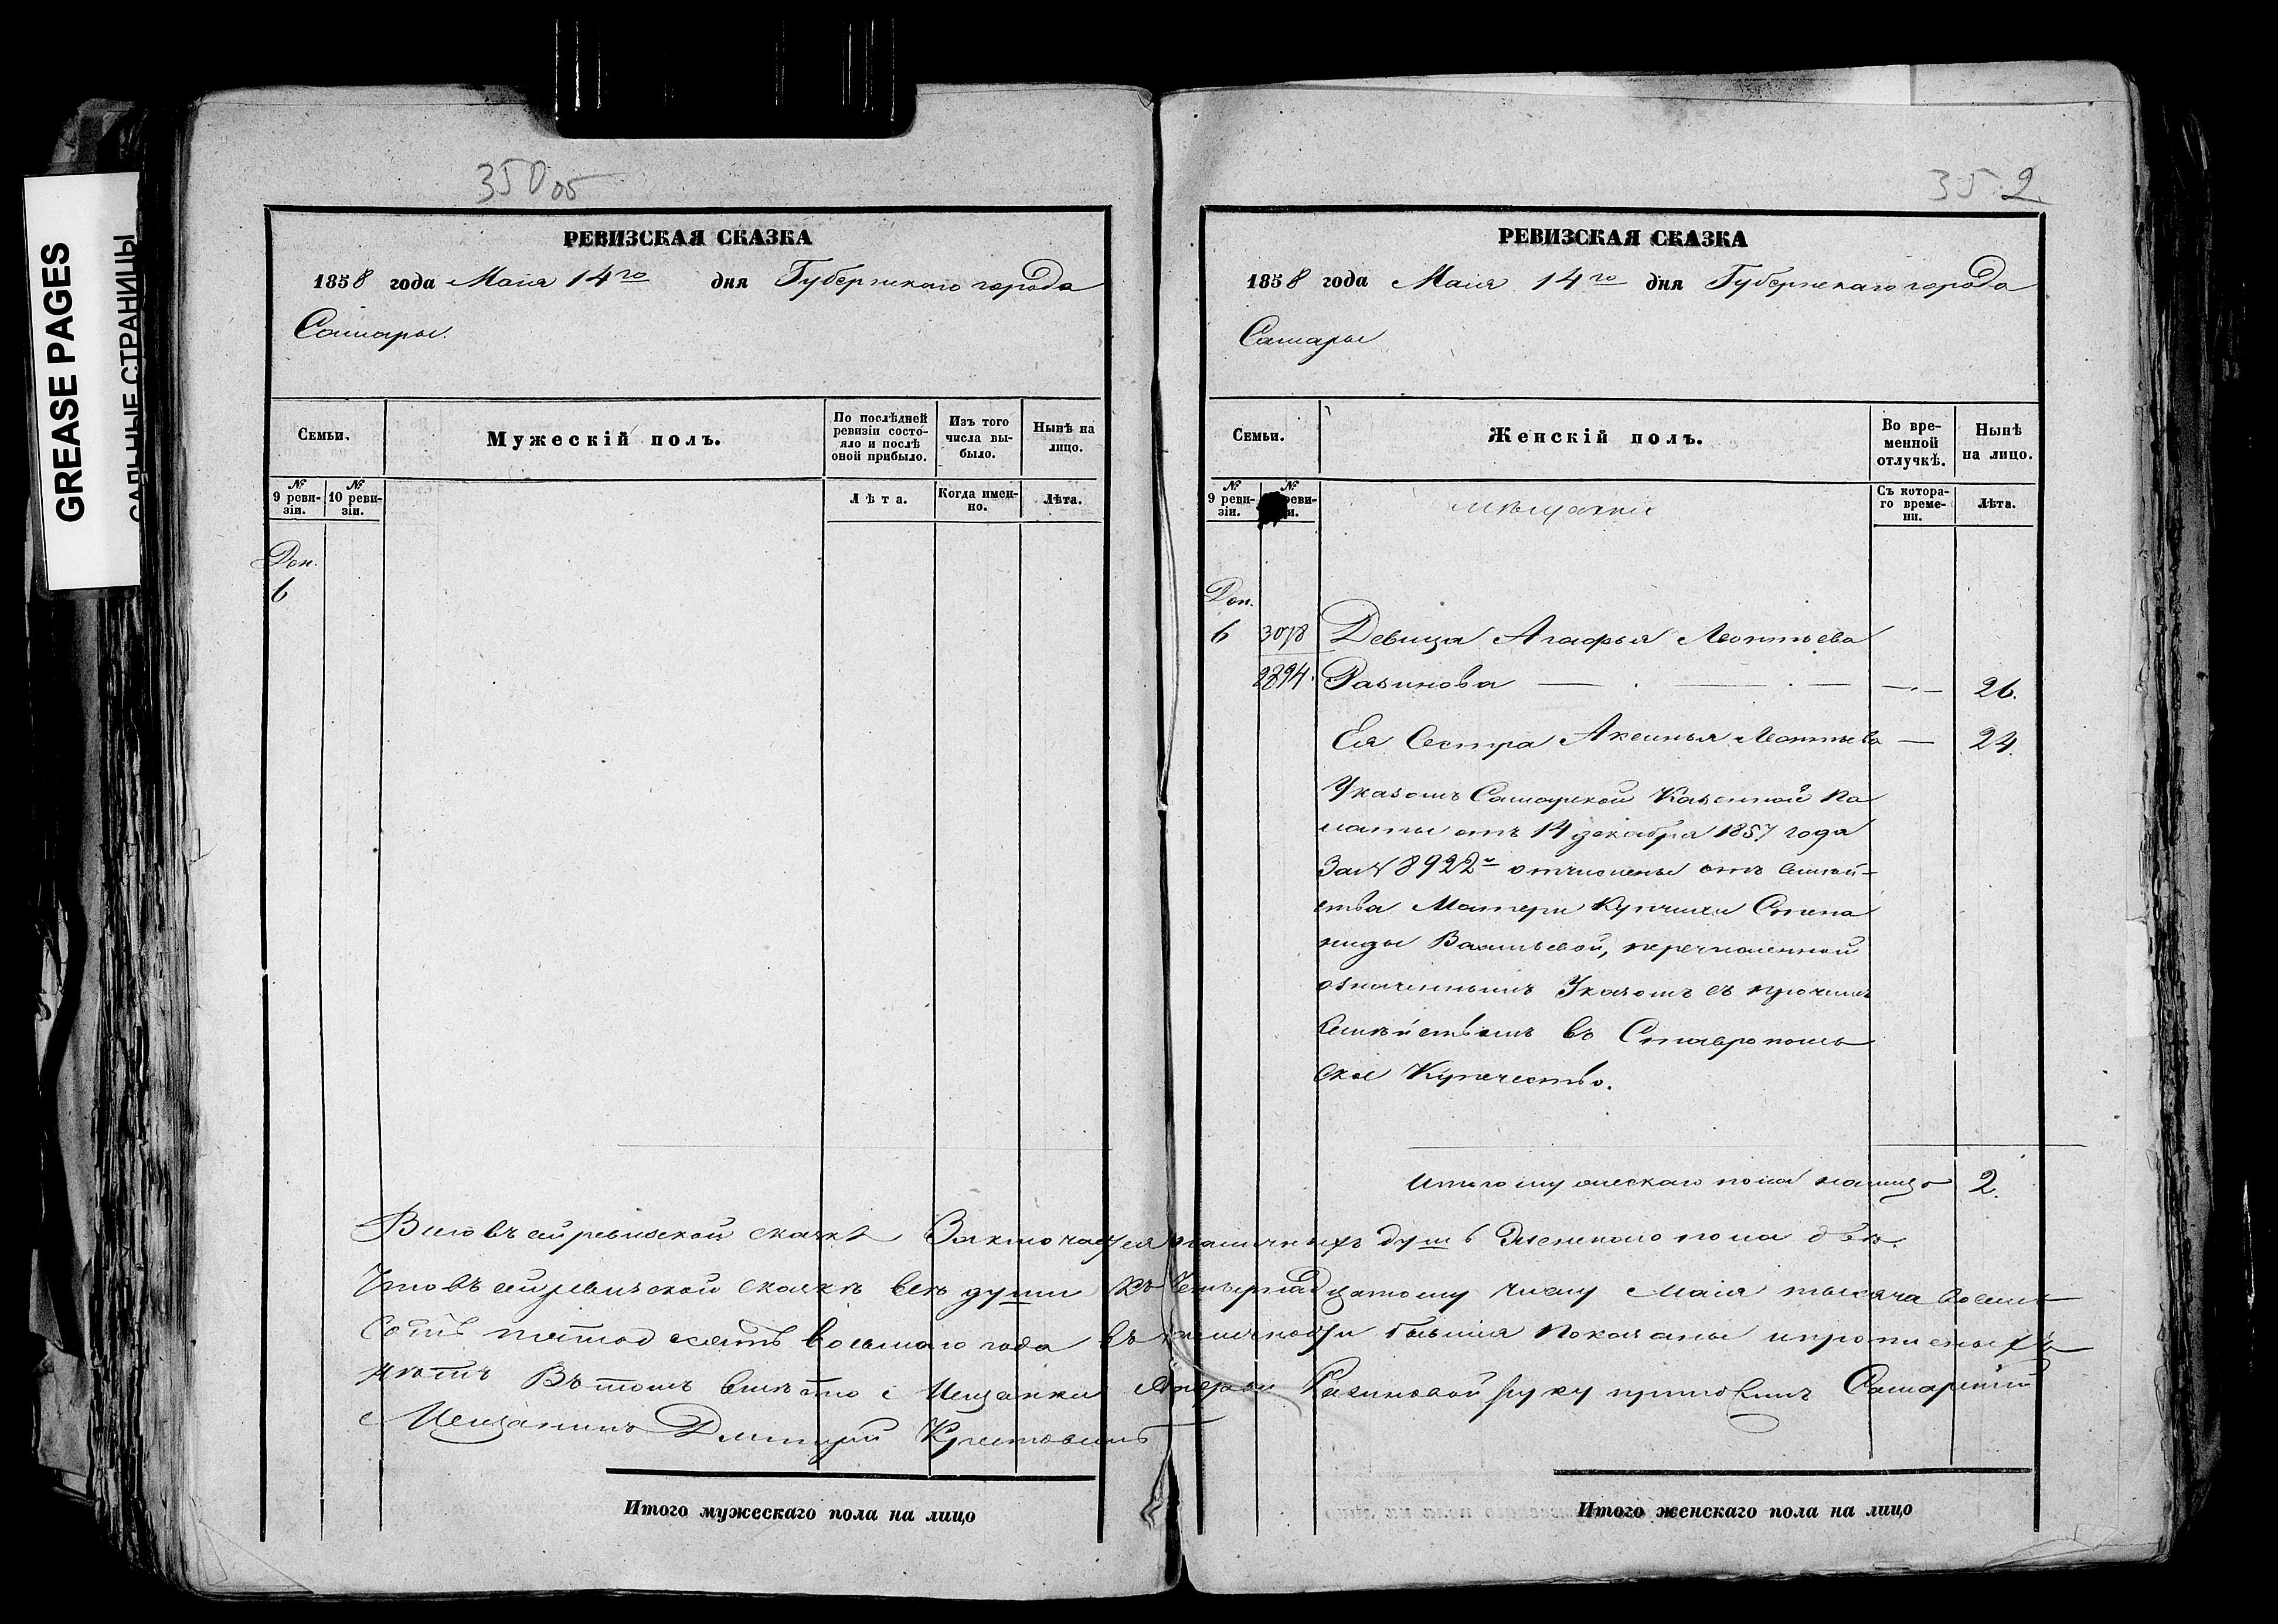 GREASE PAGES
САЛЬНЫЕ СТРАНИЦЫ
350 об
РЕВИЗСКАЯ СКАЗКА
1858 года Маия 14го дня Губернскаго города
Самары.
Семьи.
Мужескій полъ.
По послѣдней ревизіи состояло и послѣ оной прибыло.
Изъ того числа выбыло.
Нынѣ на лицо.
№ 9 ревизіи.
№ 10 ревизіи.
Лѣта.
Когда именно.
Лѣта.
Доп.
6
352
РЕВИЗСКАЯ СКАЗКА
1858 года Маия 14го дня Губернскаго города
Самары
Семьи.
Женскій полъ.
Во временной отлучкѣ.
Нынѣ на лицо.
№ 9 ревизіи.
№ реви-и.
мѣщанки
Съ котораго времени.
Лѣта.
Доп.
6 3078 Девица Агафья Леонтьева
2894. Разинова — . — . — —.— 26.
Ея Сестра Аксинья Леонтьева — 24.
Указомъ Самарской Казенной Па
латы отъ 14 декабря 1857 года
За № 8922м отчислены отъ семей-
ства Матери Купчихи Степа
ниды Васильевой, перечисленной
означеннымъ Указомъ съ прочимъ
Семѣйствомъ въ Ставрополь
ское Купечество.
Итого женскаго пола налицо 2.
Всего въ сей ревизской сказке Заключается наличныхъ душъ Женскаго пола двѣ.
Что въ сей ревизской сказкѣ всѣ души къ Четырнадцатому числу Маия тысяча восемь
сотъ пятьдесятъ восьмаго года въ наличности бывшия показаны и прописныхъ
нѣтъ Въ томъ вмѣсто Мещанки Агафьи Разиновой руку приложилъ Самарский
Мещанинъ Дмитрий
Итого мужескаго пола на лицо
Итого женскаго пола на лицо